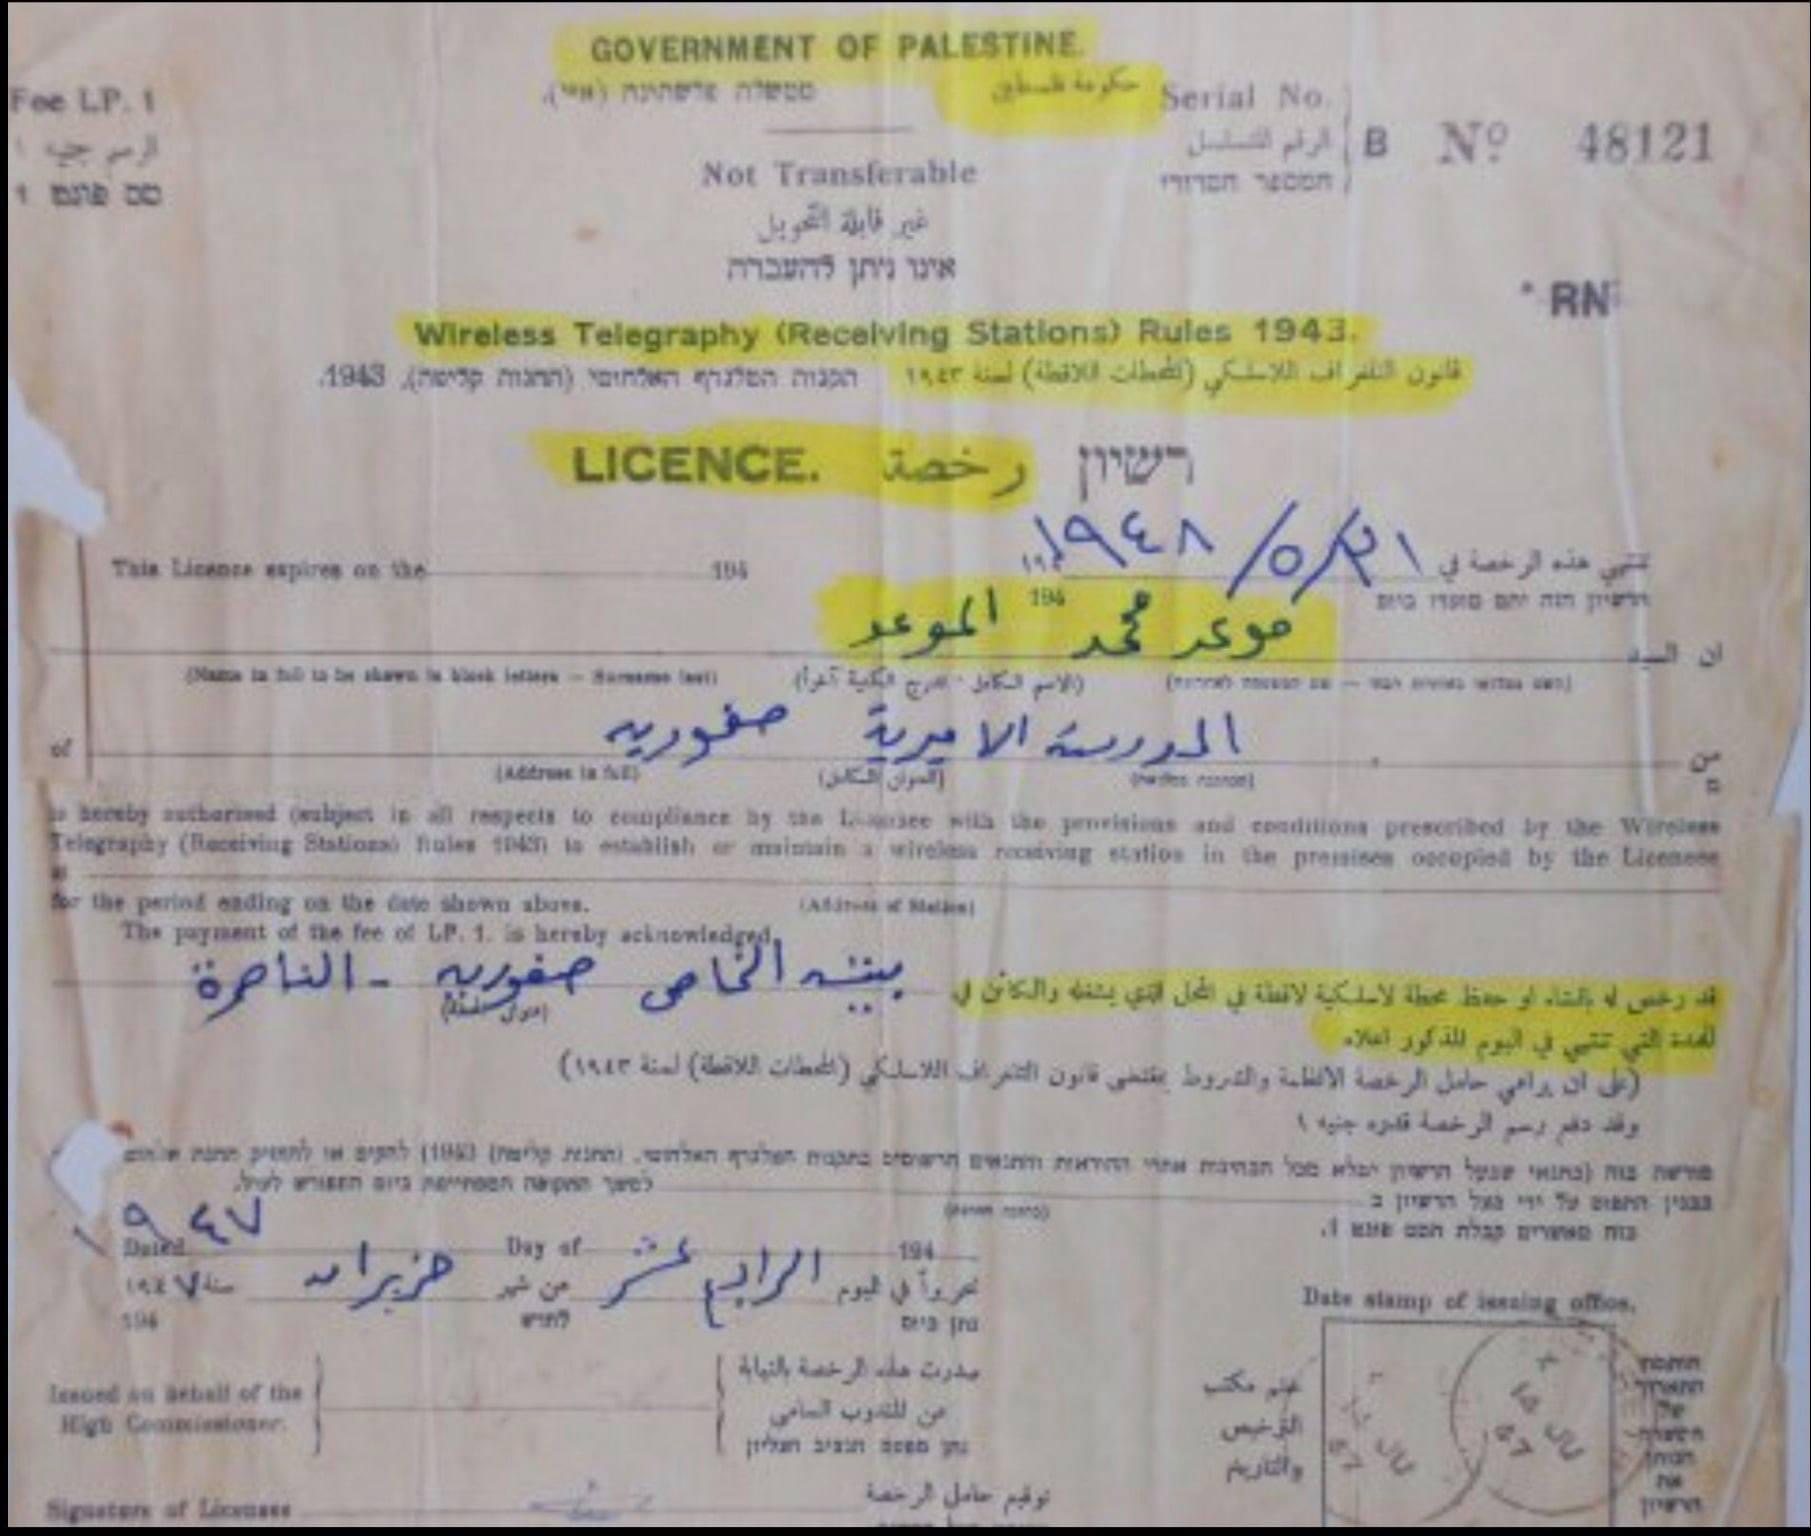 GOVERNMENT OF PALESTINE.
حكومة فلسطين ממשלת פלשתינה (א״י).
Fee LP. 1
الرسم جنيه ١
מס פונט 1
Serial No.
الرقم المتسلسل
המספר הסדורי
B No 48121
Not Transferable
غير قابلة التحويل
אינו ניתן להעברה
* RN
Wireless Telegraphy (Receiving Stations) Rules 1943.
قانون التلغراف اللاسلكي (المحطات اللاقطة) لسنة ١٩٤٣ תקנות הטלגרף האלחוטי (תחנות קליטה), 1943.
LICENCE. رخصة רשיון
This Licence expires on the 194
تنتهي هذه الرخصة في ١٩٤٨/٥/٣١
הרשיון הזה יתם מועדו ביום 194
ان السيد موعد محمد الموعد
(Name in full to be shown in block letters — Surname last) (الاسم الكامل - تدرج الكنية آخراً)
of المدرسة الاميرية صفورية من
(Address in full) (العنوان الكامل) (כתובת מלאה)
is hereby authorised (subject in all respects to compliance by the Licensee with the provisions and conditions prescribed by the Wireless
Telegraphy (Receiving Stations) Rules 1943) to establish or maintain a wireless receiving station in the premises occupied by the Licensee
at
for the period ending on the date shown above. (Address of Station)
The payment of the fee of LP. 1. is hereby acknowledged.
قد رخص له بانشاء او حفظ محطة لاسلكية لاقطة في المحل الذي يشغله والكائن في بيته الخاص صفوريه - الناصرة
للمدة التي تنتهي في اليوم المذكور اعلاه
(على ان يراعي حامل الرخصة الانظمة والشروط بمقتضى قانون التلغراف اللاسلكي (المحطات اللاقطة) لسنة ١٩٤٣)
وقد دفع رسم الرخصة قدره جنيه ١
מורשה בזה (בתנאי שבעל הרשיון ימלא מכל הבחינות אחרי ההוראות והתנאים הרשומים בתקנות הטלגרף האלחוטי, (תחנות קליטה) 1943) להקים או להחזיק תחנת
בבנין התפוס על ידי בעל הרשיון ב למשך התקופה המסתיימת ביום המפורש לעיל.
בזה מאשרים קבלת המס פונט 1.
١٩٤٧
Dated Day of 194
تحريراً في اليوم الرابع عشر من شهر حزيران سنة ١٩٤٧
נתן ביום לחדש 194
Issued on behalf of the
High Commissioner.
صدرت هذه الرخصة بالنيابة
عن المندوب السامي
נתן מטעם הנציב העליון
Date stamp of issuing office.
ختم مكتب
الترخيص
والتاريخ
חותמת
התאריך
של
המשרד
הנותן
את
הרשיון
Signature of Licensee توقيع حامل الرخصة